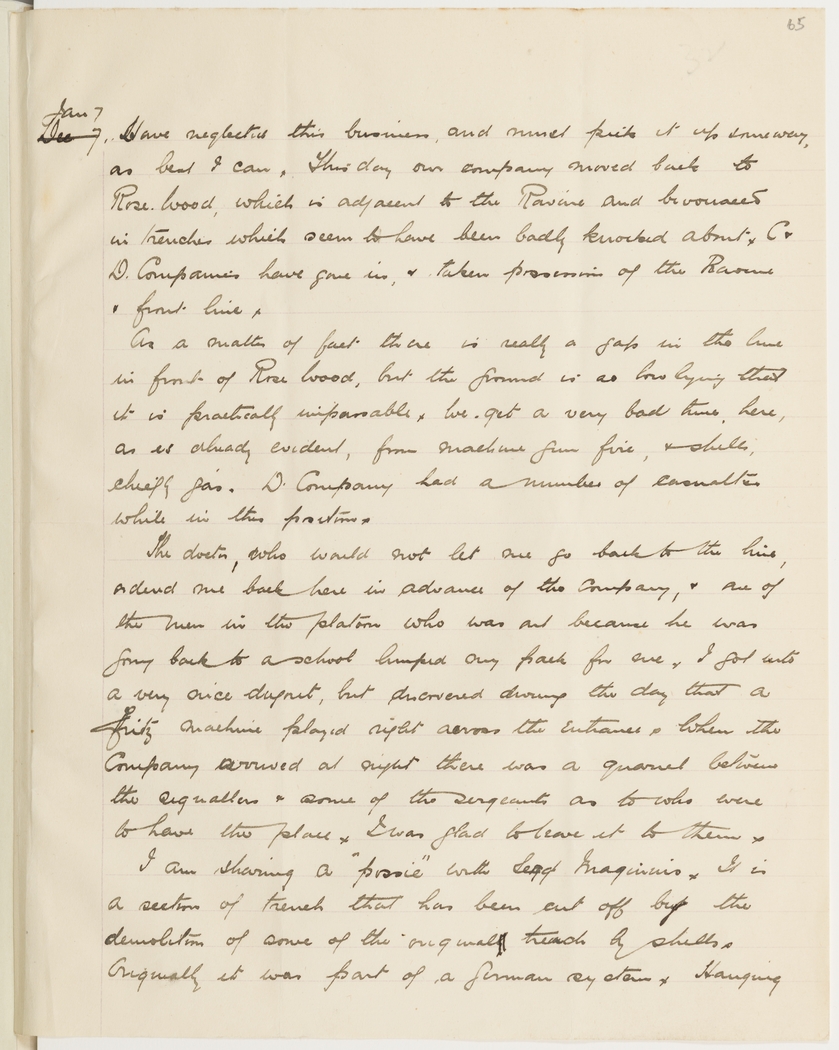 65
Jan 7
Dec 7. Have neglected this business, and must pick it up someway,
as best I can. This day our company moved back to
Rose. Wood, which is adjacent to the Ravine and bivouaced
in trenches which seem to have been badly knocked about. C &
D. Companies have gone in, & taken possession of the Ravine
& front line.
As a matter of fact there is really a gap in the line
in front of Rose Wood, but the ground is so low lying that
it is practically impassable. We get a very bad time, here,
as is already evident, from machine gun fire, & shells,
cheifly gas. D. Company had a number of casualties
while in this position.
The doctor, who would not let me go back to the line,
ordered me back here in advance of the company, & one of
the men in the platoon who was out because he was
going back to a school humped my pack for me. I got into
a very nice dugout, but discovered during the day that a
Fritz machine played right across the entrance. When the
Company arrived at night there was a quarrel between
the signallers & some of the sergeants as to who were
to have the place. I was glad to leave it to them.
I am sharing a "possie" with Maginnis. It is
a section of trench that has been cut off by the
demolition of some of the original trench by shells.
Originally it was part of a German system. Hanging